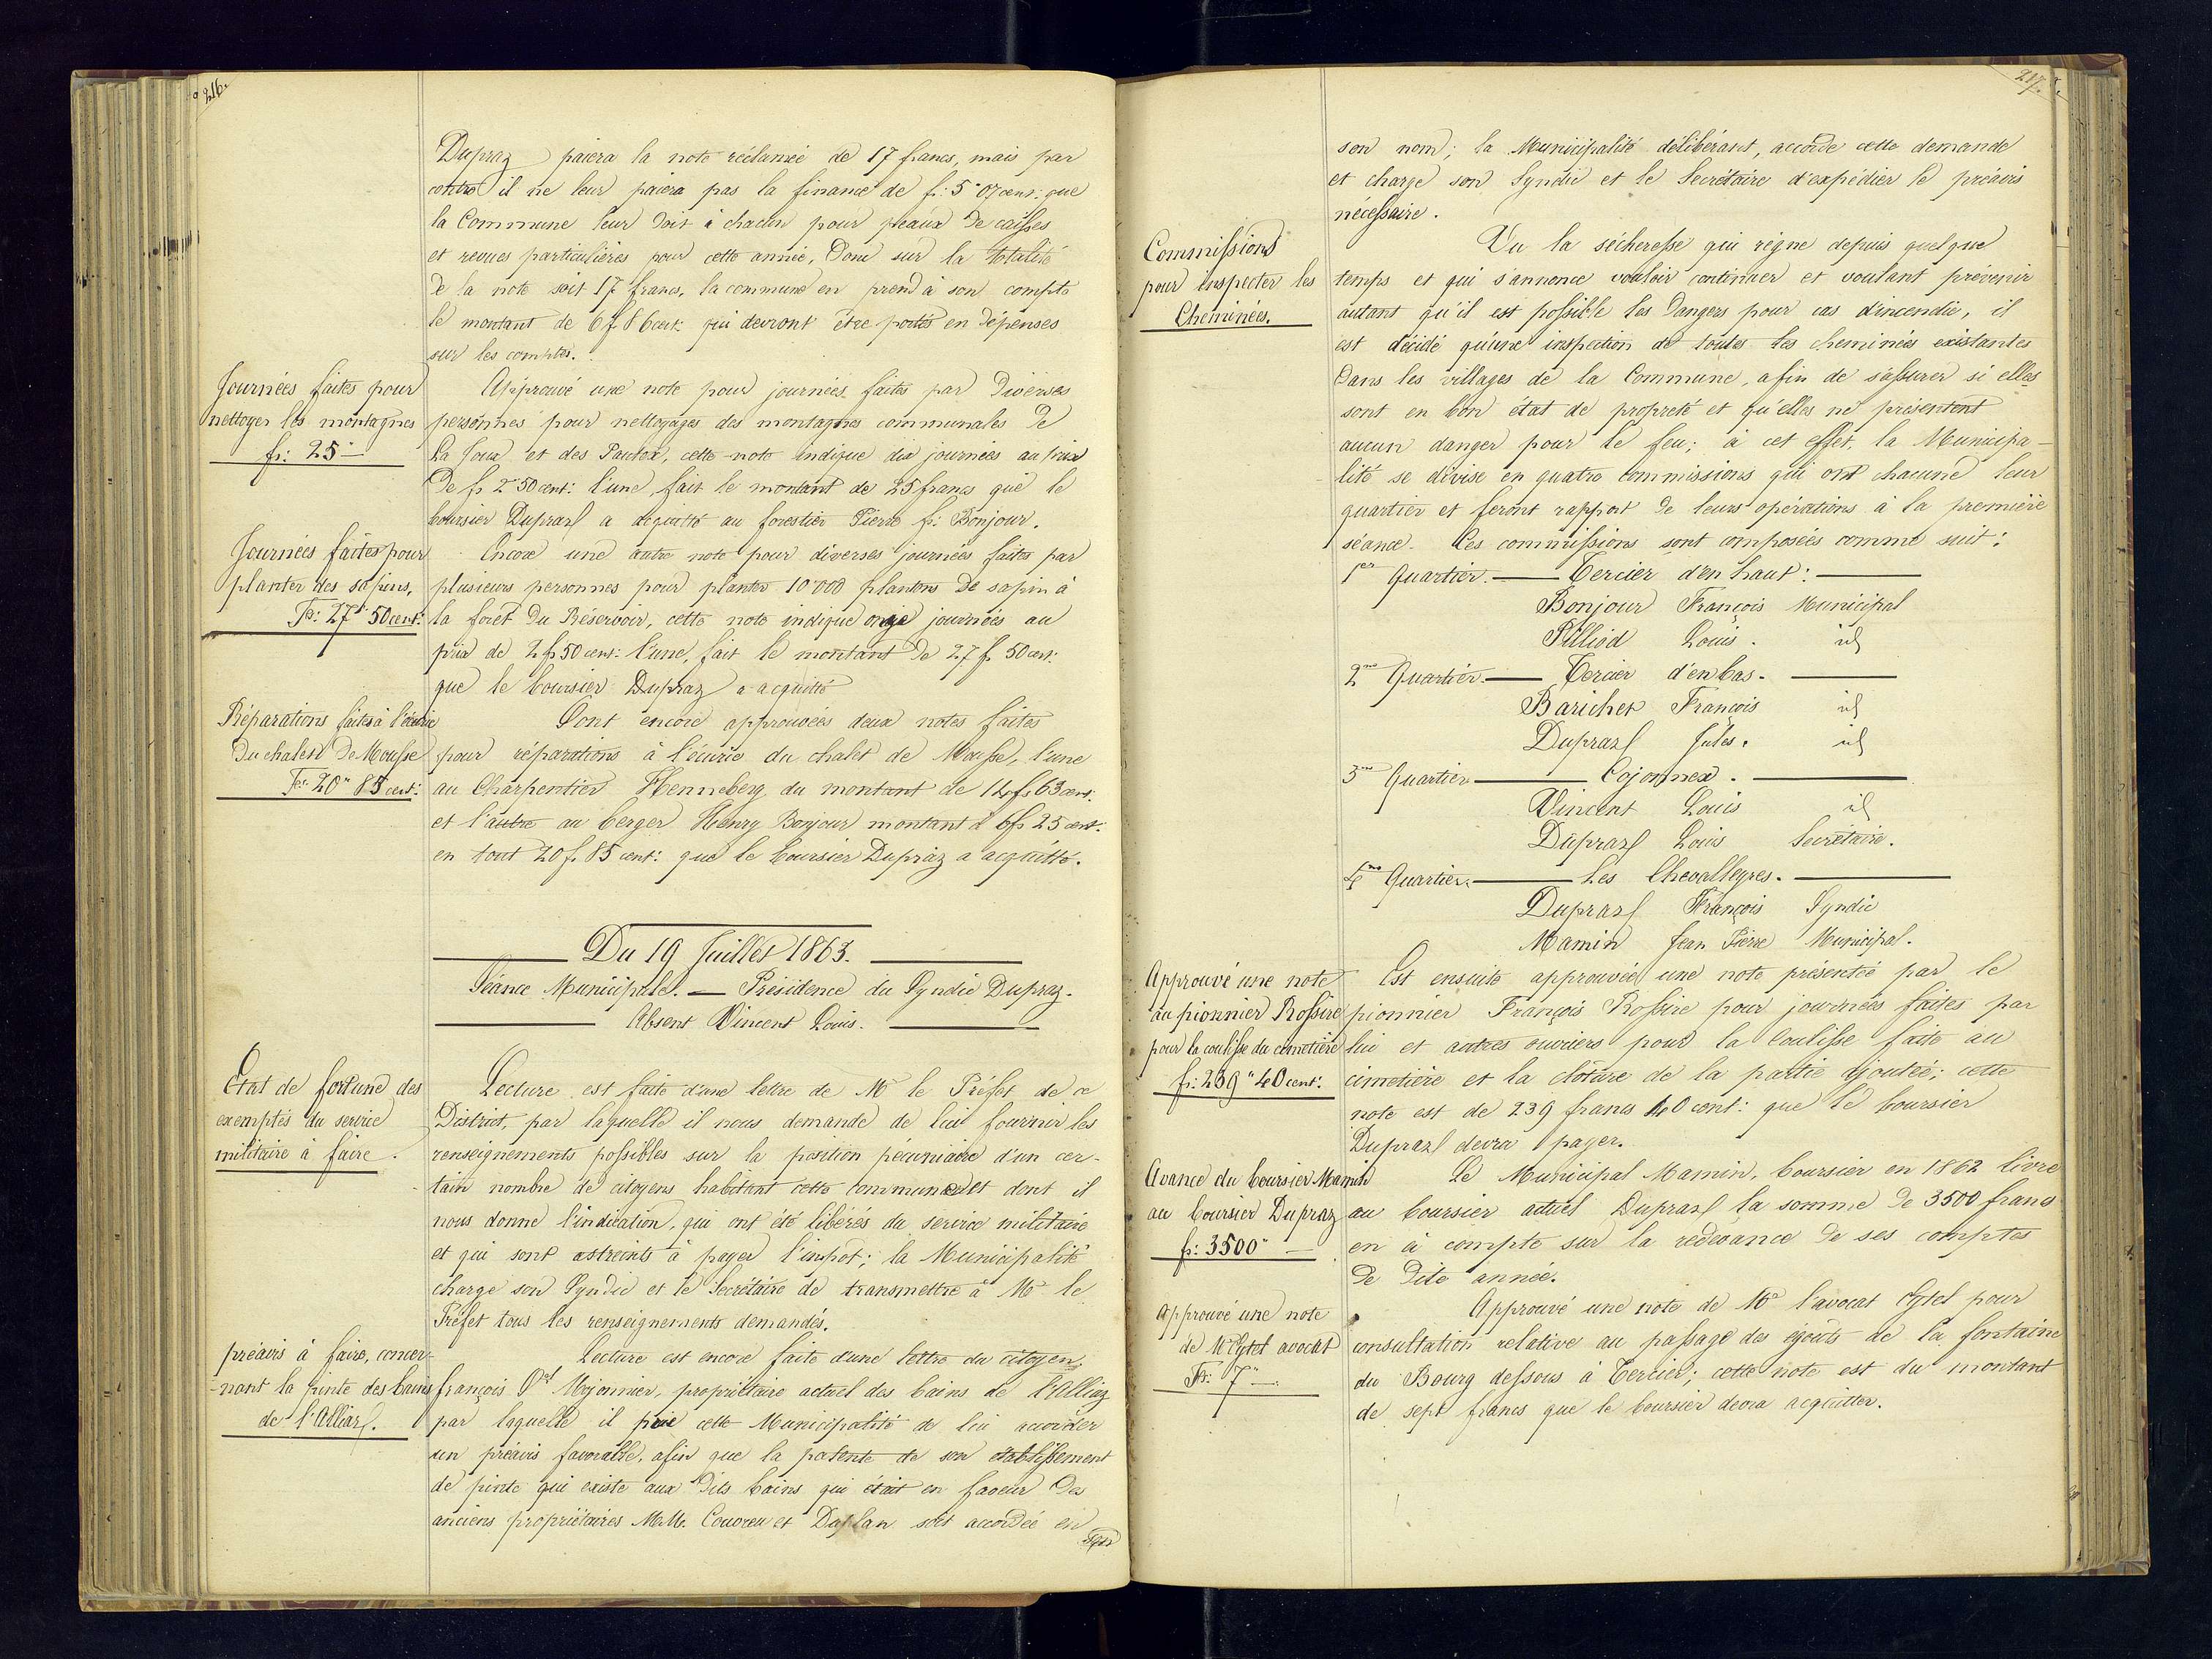 216.
Dupraz paiera la note réclamée de 17 francs, mais par
contre il ne leur paiera pas la finance de f: 5" 07 cent: que
la Commune leur doit à chacun pour peaux de caisses
et revues particulières pour cette année, Donc sur la totalité
de la note soit 17 francs, la commune en prend à son compte
le montant de 6 f 86 cent: qui devront être portés en dépenses
sur les comptes.
Journées faites pour
nettoyer les montagnes
fr: 25 —
Approuvé une note pour journées faites par Diverses
personnes pour nettoyages des montagnes communales de
La Joux et des Pautex, cette note indique dix journées au prix
De fr 2" 50 cent: l'une, fait le montant de 25 francs que le
boursier Duprasz a acquitté au forestier Pierre fs: Bonjour.
Journées faites pour
planter des sapins,
Fr: 27" 50 cent:
Encore une autre note pour diverses journées faites par
plusieurs personnes pour planter 10'000 plantons de sapin à
la forêt du Réservoir, cette note indique onze journées au
prix de 2 fr 50 cent: l'une, fait le montant de 27 f 50 cent:
que le boursier Dupraz a acquitté
Réparations faites à l'écurie
du chalet de Mousse
Fr. 20" 85 cent:
Sont encore approuvées deux notes faites
pour réparations à l'écurie du chalet de Mousse, l'une
au Charpentier Henneberg du montant de 14 fs 63 cent:
et l'autre au berger Henry Bonjour montant à 6 fr 25 cent:
en tout 20 f. 85 cent: que le boursier Dupraz a acquitté.
Du 19 Juillet 1863.
Séance Municipale. — Présidence du Syndic Dupraz.
Absent Vincent Louis.
Etat de fortune des
exemptés du service
militaire à faire.
Lecture est faite d'une lettre de Mr le Préfet de ce
District, par laquelle il nous demande de lui fournir les
renseignements possibles sur la position pécuniaire d'un cer-
tain nombre de citoyens habitant cette commune et dont il
nous donne l'indication, qui ont été libérés du service militaire
et qui sont astreints à payer l'impôt; la Municipalité
charge son Syndic et le Secrétaire de transmettre à Mr le
Préfet tous les renseignements demandés.
préavis à faire, concer-
nant la pinte des bains
de l'Alliaz.
Lecture est encore faite d'une lettre du citoyen
françois Mojonnier, propriétaire actuel des bains de l'Alliaz
par laquelle il prie cette Municipalité de lui accorder
un préavis favorable, afin que la patente de son établissement
de pinte qui existe aux dits bains qui était en faveur des
anciens propriétaires M.M. Couvreu et Duplan soit accordée en
son
217.
son nom; la Municipalité délibérant, accorde cette demande
et charge son Syndic et le Secrétaire d'expédier le préavis
nécessaire.
Commissions
pour inspecter les
Cheminées.
Vu la sécheresse qui règne depuis quelque
temps et qui s'annonce vouloir continuer et voulant prévenir
autant qu'il est possible les Dangers pour cas d'incendie, il
est décidé qu'une inspection de toutes les cheminées existantes
dans les villages de la Commune, afin de s'assurer si elles
sont en bon état de propreté et qu'elles ne présentent
aucun danger pour le feu; à cet effet, la Municipa-
lité se divise en quatre commissions qui ont chacune leur
quartier et feront rapport de leurs opérations à la première
séance. Ces commissions sont composées comme suit:
1er Quartier. — Tercier d'en haut: —
Bonjour François Municipal
Pilliod Louis. id
2me Quartier. — Tercier d'en bas. —
Barichet François id
Duprasz Jules. id
3me Quartier — Cojonnex. —
Vincent Louis id
Duprasz Louis Secrétaire.
4me Quartier. — Les Chevalleyres. —
Duprasz François Syndic
Mamin Jean Pierre Municipal.
Approuvé une note
au pionnier Rossire
pour la coulisse du cimetière
fr: 239" 40 cent:
Est ensuite approuvée une note présentée par le
pionnier François Rossire pour journées faites par
lui et autres ouvriers pour la Coulisse faite au
cimetière et la clôture de la partie ajoutée; cette
note est de 239 francs 40 cent: que le boursier
Duprasz devra payer.
Avance du boursier Mamin
au boursier Dupraz
fr: 3500" —
Le Municipal Mamin, boursier en 1862 livre
au boursier actuel Duprasz la somme de 3500 francs
en à compte sur la redevance de ses comptes
De Dite année.
Approuvé une note
de Mr Cytel avocat
Fr: 7" —
Approuvé une note de Mr l'avocat Cytel pour
consultation relative au passage des égouts de la fontaine
du Bourg dessous à Tercier; cette note est du montant
de sept francs que le boursier devra acquitter.